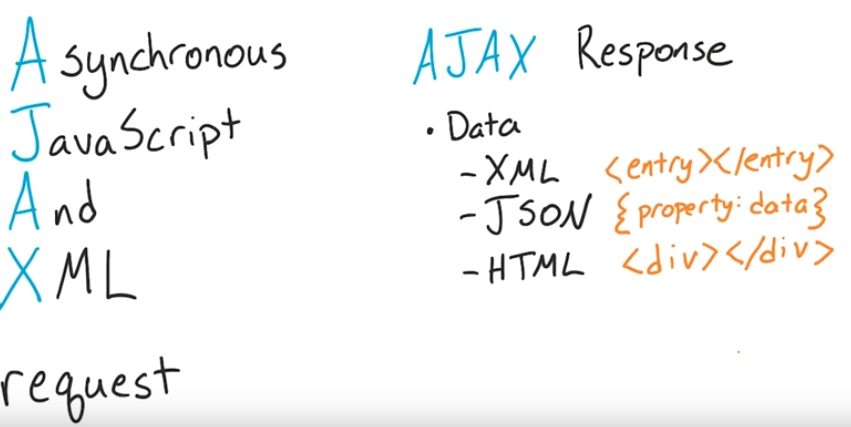 Asynchronous
JavaScript
And
XML
request
AJAX Response
• Data
- XML <entry></entry>
- JSON {property: data}
- HTML <div></div>